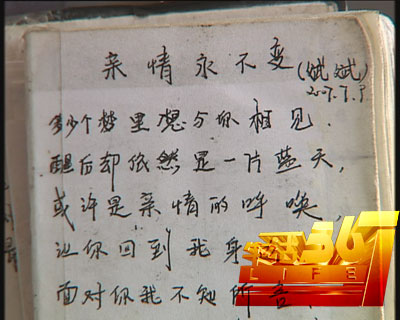 亲情永不变(斌斌)
多少个梦里想与你相见.
醒后却依然是一片蓝天,
或许是亲情的呼唤
让你回到我身
面对你我不知所言
LIFE